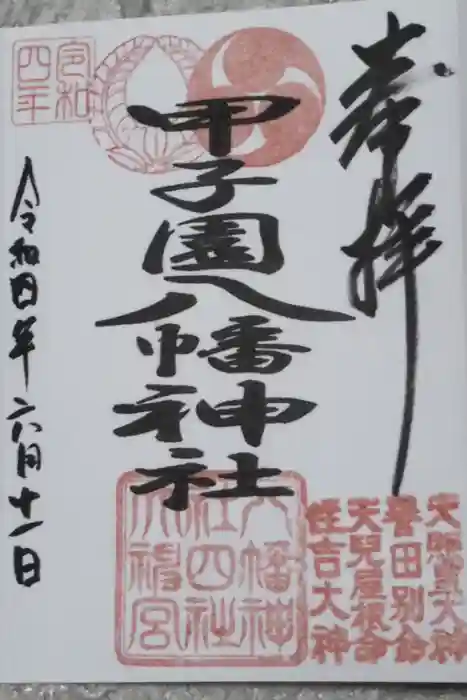 奉拝
天照皇大神
誉田別命
天兒屋根命
住吉大神
甲子園八幡神社
令和四年
八幡神
社四社
大鳴宮
令和四年六月十一日